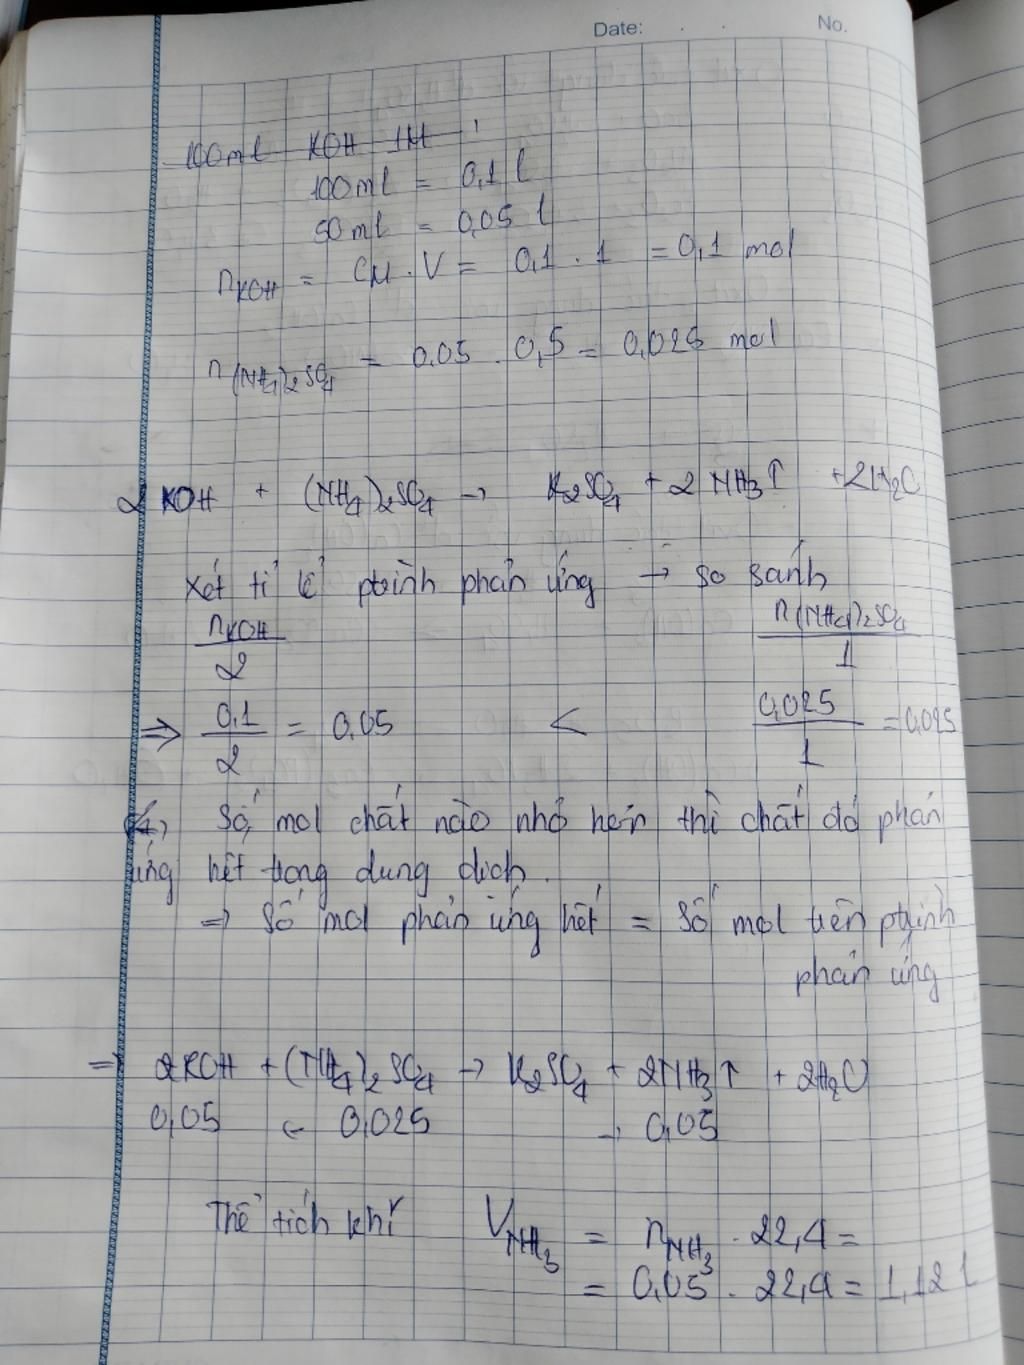 Date: No.
100ml KOH 1M
100ml = 0,1 l
50ml = 0,05 l
nKOH = CM . V = 0,1 . 1 = 0,1 mol
n(NH4)2SO4 = 0,05 . 0,5 = 0,025 mol
2 KOH + (NH4)2SO4 → K2SO4 + 2 NH3↑ + 2H2O
Xét tỉ lệ ptrình phản ứng → so sánh
nKOH/2 n(NH4)2SO4/1
⇒ 0,1/2 = 0,05 < 0,025/1 = 0,025
Số mol chất nào nhỏ hơn thì chất đó phản
ứng hết trong dung dịch.
⇒ Số mol phản ứng hết = Số mol trên ptrình
phản ứng
⇒ 2KOH + (NH4)2SO4 → K2SO4 + 2NH3↑ + 2H2O
0,05 ← 0,025 → 0,05
Thể tích khí VNH3 = nNH3 . 22,4 =
= 0,05 . 22,4 = 1,12 l